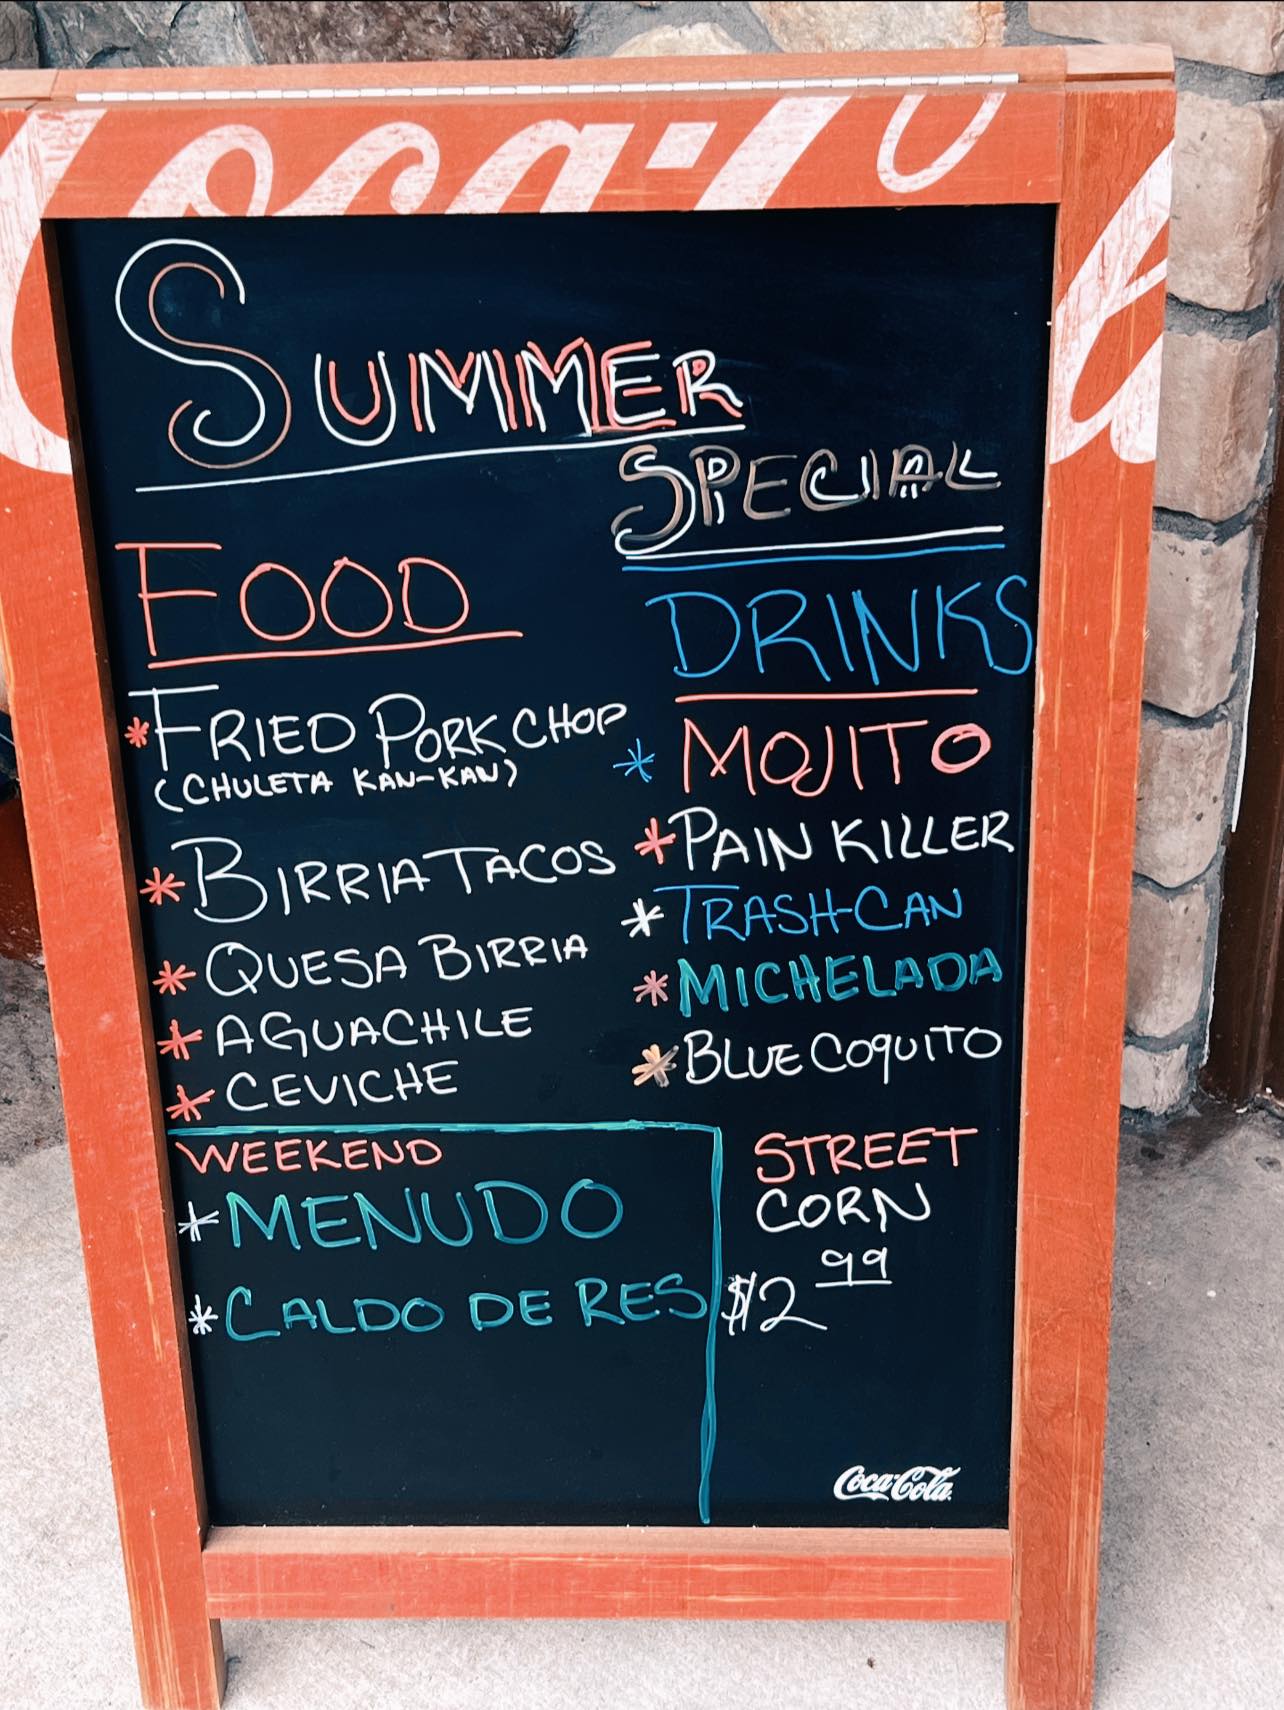 Coca-Cola
SUMMER
SPECIAL
FOOD
* FRIED PORK CHOP
(CHULETA KAN-KAN)
* BIRRIA TACOS
* QUESA BIRRIA
* AGUACHILE
* CEVICHE
DRINKS
* MOJITO
* PAIN KILLER
* TRASH CAN
* MICHELADA
* BLUE COQUITO
WEEKEND
* MENUDO
* CALDO DE RES
STREET
CORN
$2 99
Coca-Cola